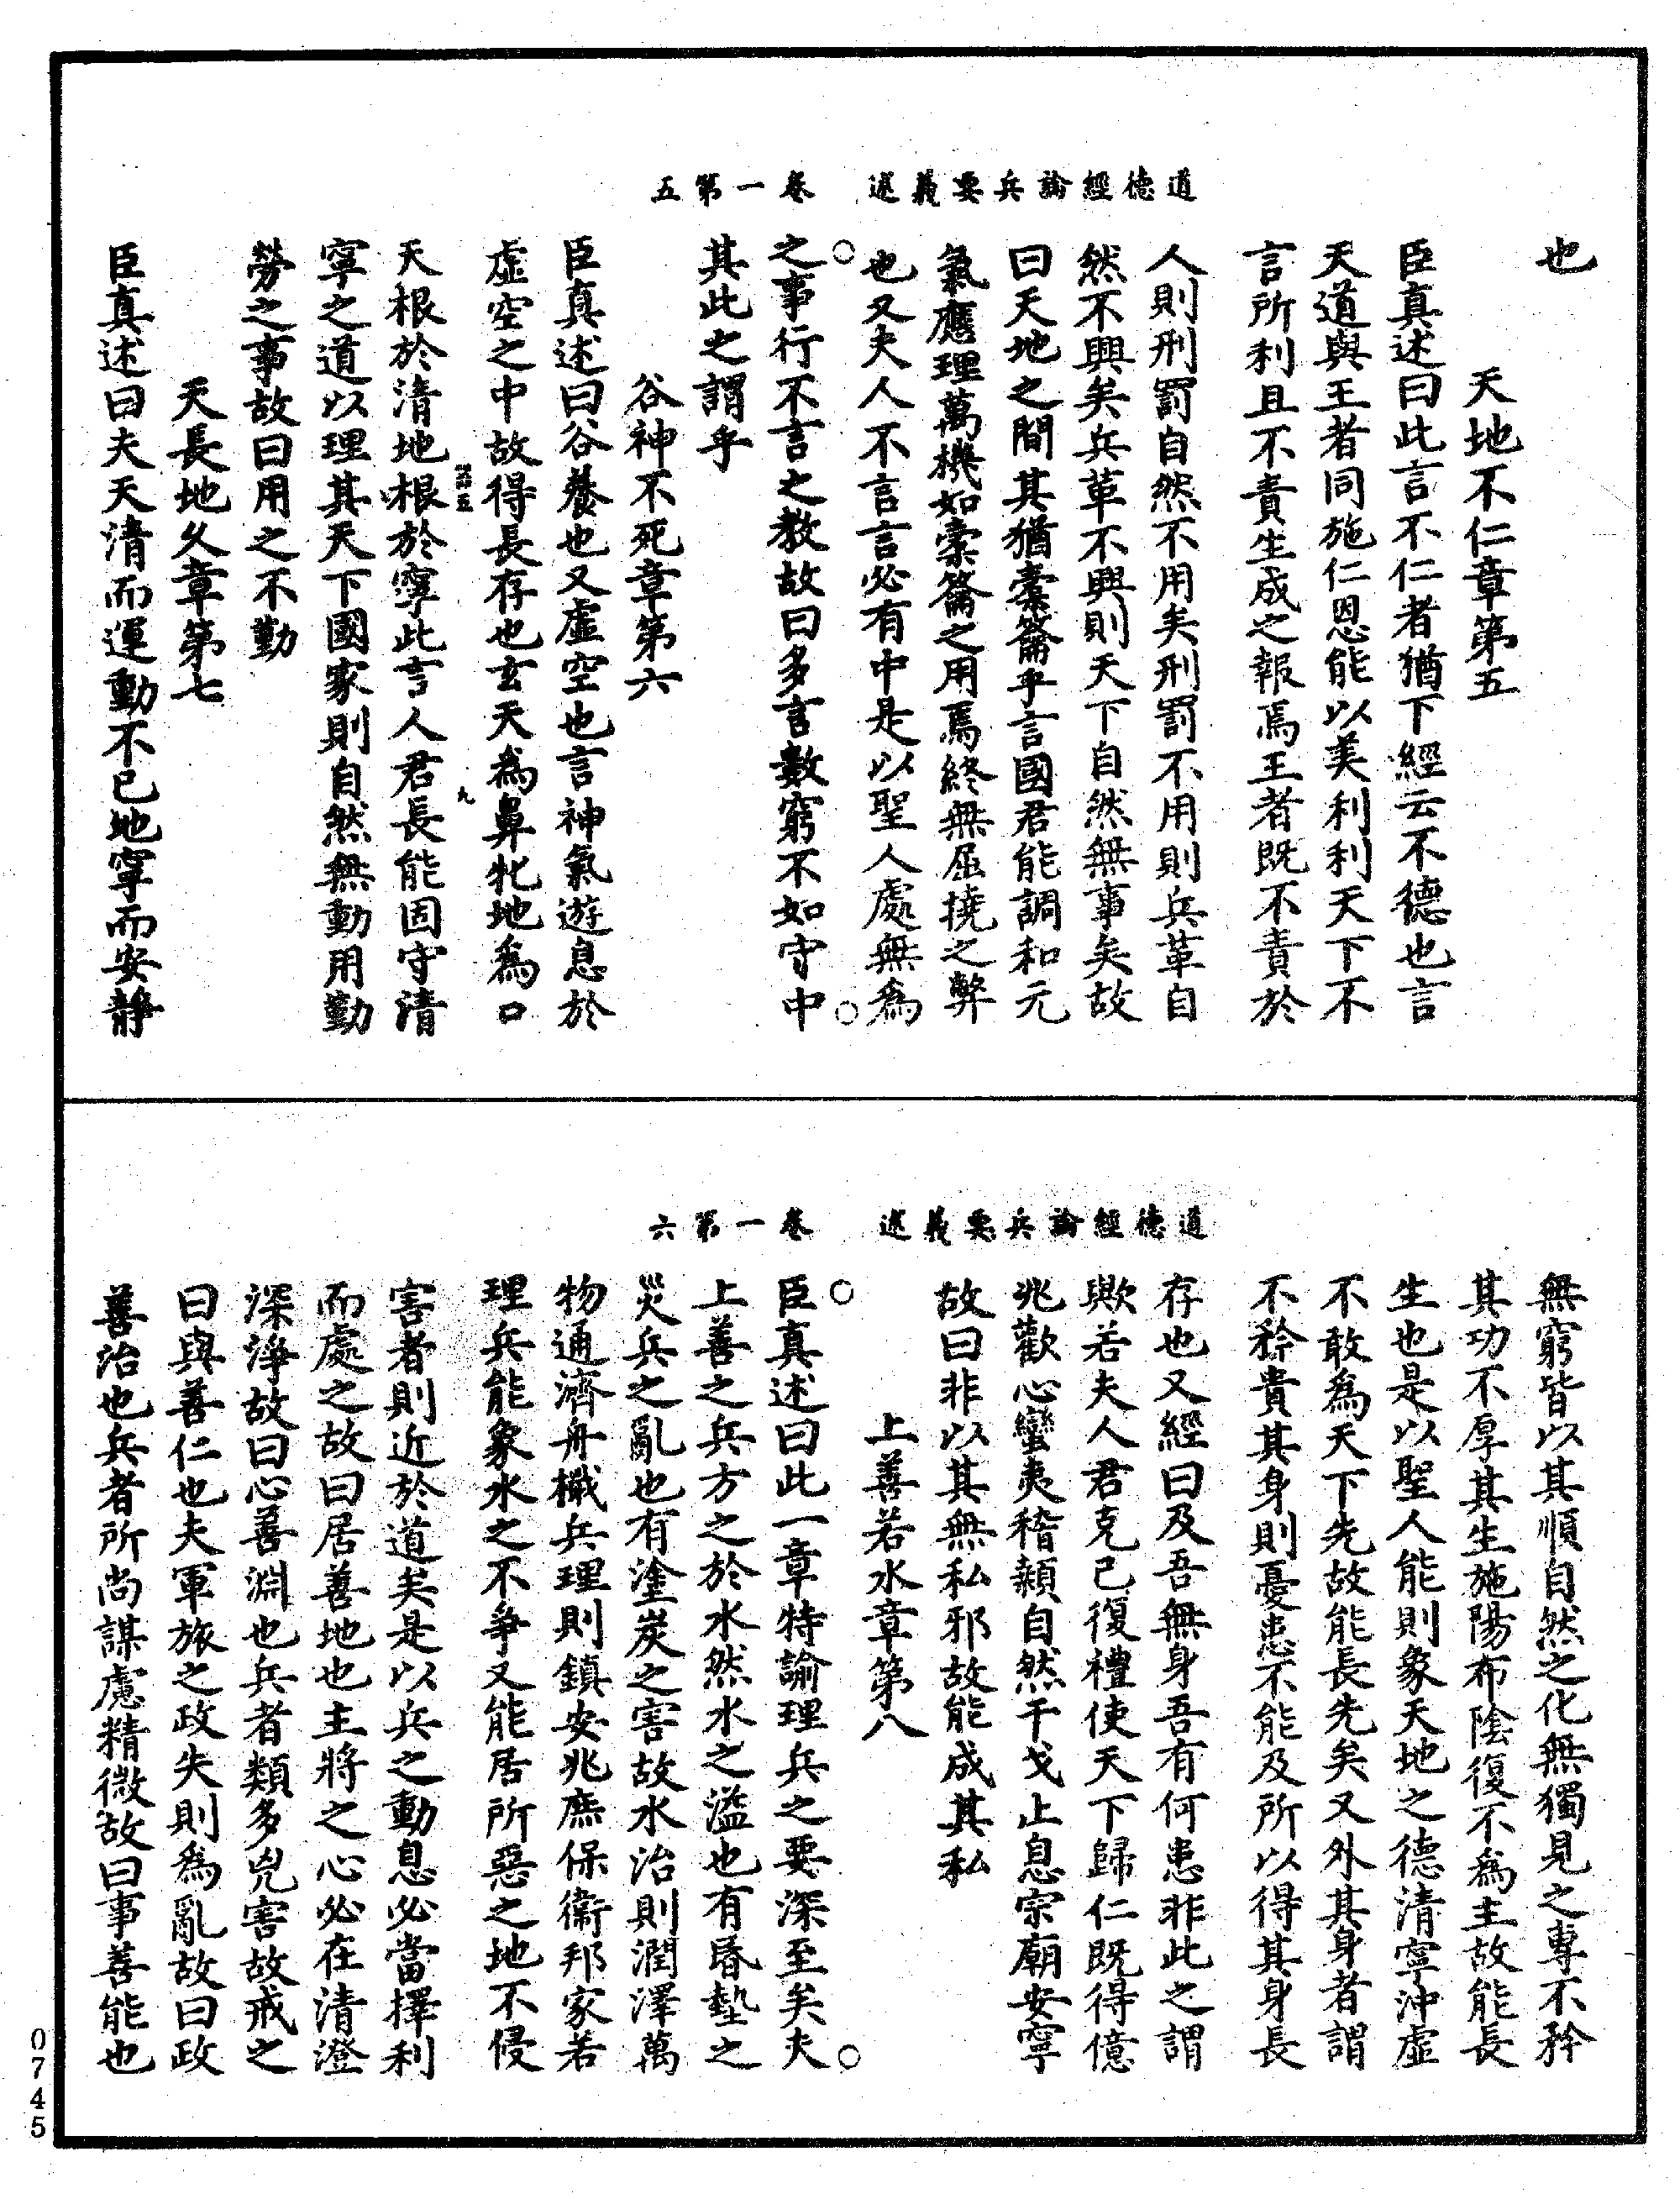 道德經論兵要義述　卷一第五
也
天地不仁章第五
臣真述曰此言不仁者猶下經云不德也言
天道與王者同施仁恩能以美利利天下不
言所利且不責生成之報焉王者既不責於
人則刑罰自然不用矣刑罰不用則兵革自
然不興矣兵革不興則天下自然無事矣故
曰天地之間其猶橐籥乎言國君能調和元
氣應理萬機如橐籥之用焉終無屈撓之弊
也又夫人不言言必有中是以聖人處無為
之事行不言之教故曰多言數窮不如守中
其此之謂乎
谷神不死章第六
臣真述曰谷養也又虛空也言神氣遊息於
虛空之中故得長存也玄天為鼻牝地為口
九
天根於清地根於寧此言人君長能固守清
寧之道以理其天下國家則自然無動用勤
勞之事故曰用之不勤
天長地久章第七
臣真述曰夫天清而運動不已地寧而安靜
道德經論兵要義述　卷一第六
無窮皆以其順自然之化無獨見之專不矜
其功不厚其生施陽布陰復不為主故能長
生也是以聖人能則象天地之德清寧沖虛
不敢為天下先故能長先矣又外其身者謂
不矜貴其身則憂患不能及所以得其身長
存也又經曰及吾無身吾有何患非此之謂
歟若夫人君克己復禮使天下歸仁既得億
兆歡心蠻夷稽顙自然干戈止息宗廟安寧
故曰非以其無私邪故能成其私
上善若水章第八
臣真述曰此一章特諭理兵之要深至矣夫
上善之兵方之於水然水之溢也有昏墊之
災兵之亂也有塗炭之害故水治則潤澤萬
物通濟舟檝兵理則鎮安兆庶保衛邦家若
理兵能象水之不爭又能居所惡之地不侵
害者則近於道矣是以兵之動息必當擇利
而處之故曰居善地也主將之心必在清澄
深淨故曰心善淵也兵者類多兇害故戒之
曰與善仁也夫軍旅之政失則為亂故曰政
善治也兵者所尚謀慮精微故曰事善能也
0745